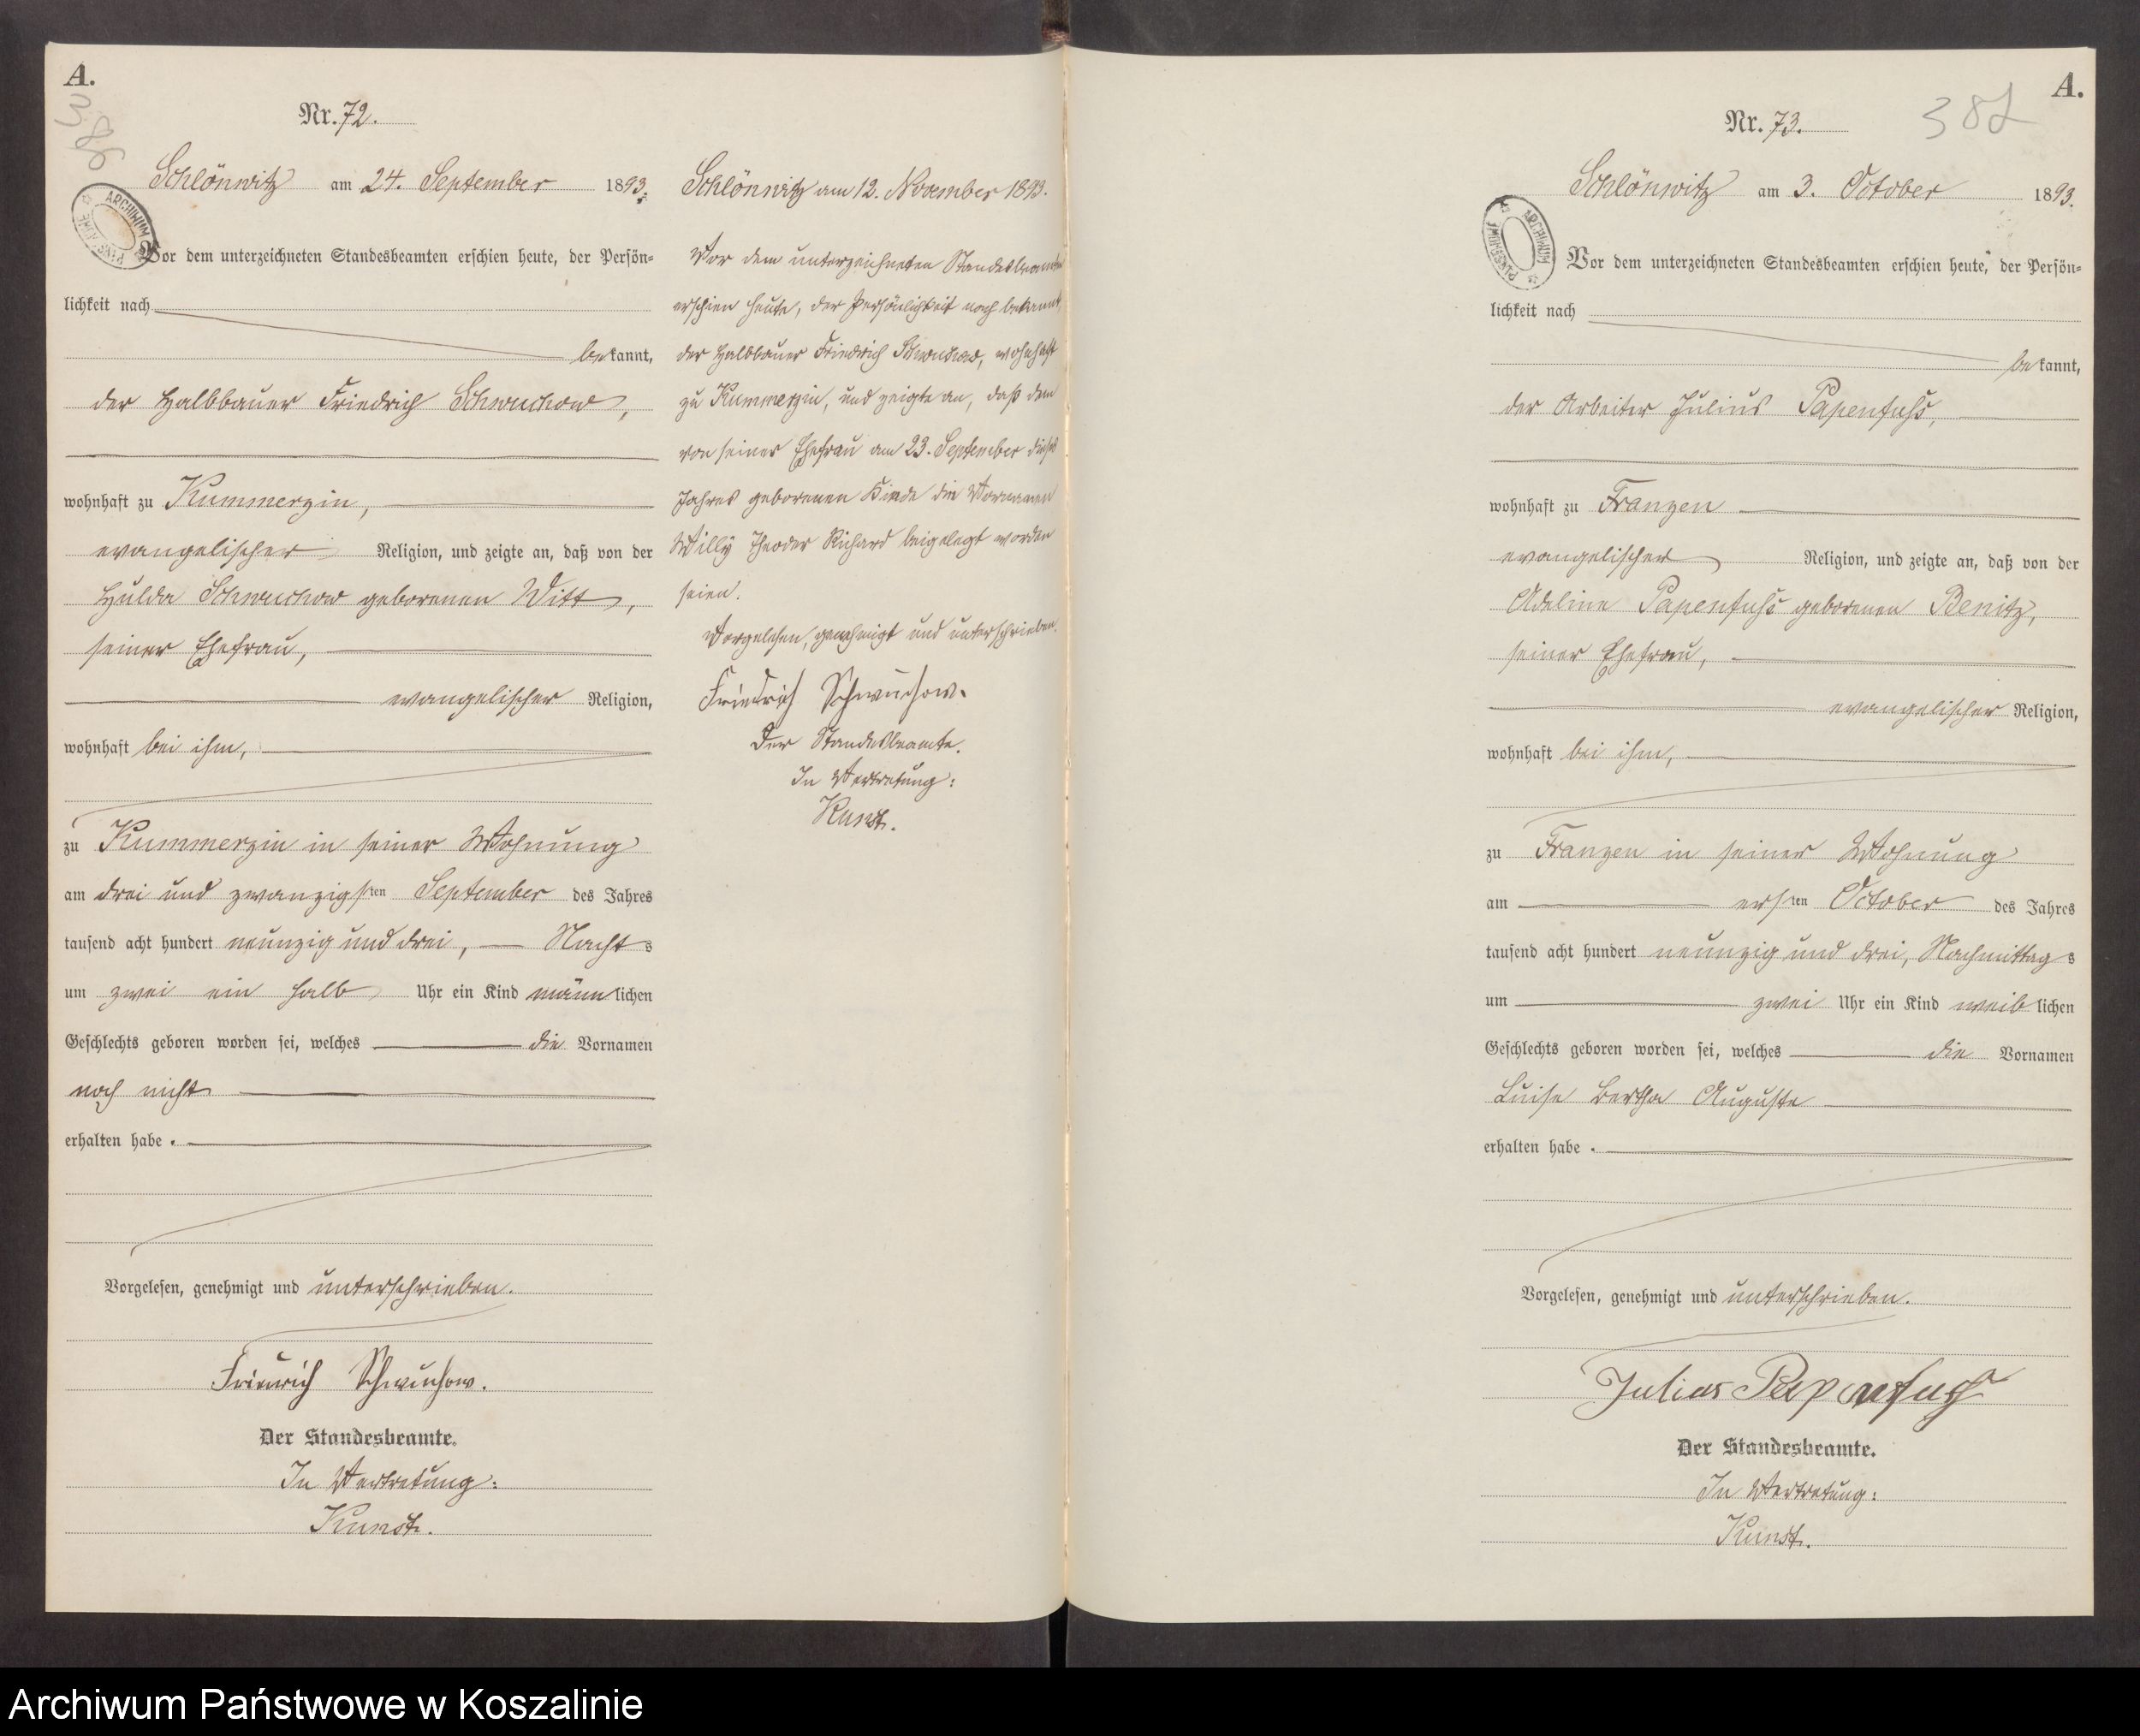 A.
386
Nr. 72.
Schlönwitz am 24. September 1893.
ARCHIWUM PAŃSTWOWE
Vor dem unterzeichneten Standesbeamten erschien heute, der Persön=
lichkeit nach
bekannt,
der Halbbauer Friedrich Schwuchow,
wohnhaft zu Kummerzin,
evangelischer Religion, und zeigte an, daß von der
Hulda Schwuchow geborenen Witt,
seiner Ehefrau,
evangelischer Religion,
wohnhaft bei ihm,
zu Kummerzin in seiner Wohnung
am drei und zwanzigsten September des Jahres
tausend acht hundert neunzig und drei, Nachts
um zwei ein halb Uhr ein Kind männlichen
Geschlechts geboren worden sei, welches die Vornamen
noch nicht
erhalten habe.
Vorgelesen, genehmigt und unterschrieben.
Friedrich Schwuchow.
Der Standesbeamte.
In Vertretung:
Kunst.
Schlönwitz am 12. November 1893.
Vor dem unterzeichneten Standesbeamten
erschien heute, der Persönlichkeit nach bekannt,
der Halbbauer Friedrich Schwuchow, wohnhaft
zu Kummerzin, und zeigte an, daß dem
von seiner Ehefrau am 23. September dieses
Jahres geborenen Kinde die Vornamen
Willy Theodor Richard beigelegt worden
seien.
Vorgelesen, genehmigt und unterschrieben.
Friedrich Schwuchow.
Der Standesbeamte.
In Vertretung:
Kunst.
A.
387
Nr. 73.
Schlönwitz am 3. October 1893.
ARCHIWUM PAŃSTWOWE
Vor dem unterzeichneten Standesbeamten erschien heute, der Persön=
lichkeit nach
bekannt,
der Arbeiter Julius Papenfuß,
wohnhaft zu Franzen
evangelischer Religion, und zeigte an, daß von der
Adeline Papenfuß geborenen Benitz,
seiner Ehefrau,
evangelischer Religion,
wohnhaft bei ihm,
zu Franzen in seiner Wohnung
am ersten October des Jahres
tausend acht hundert neunzig und drei, Nachmittags
um zwei Uhr ein Kind weiblichen
Geschlechts geboren worden sei, welches die Vornamen
Luise Bertha Auguste
erhalten habe.
Vorgelesen, genehmigt und unterschrieben.
Julius Papenfuß
Der Standesbeamte.
In Vertretung:
Kunst.
Archiwum Państwowe w Koszalinie